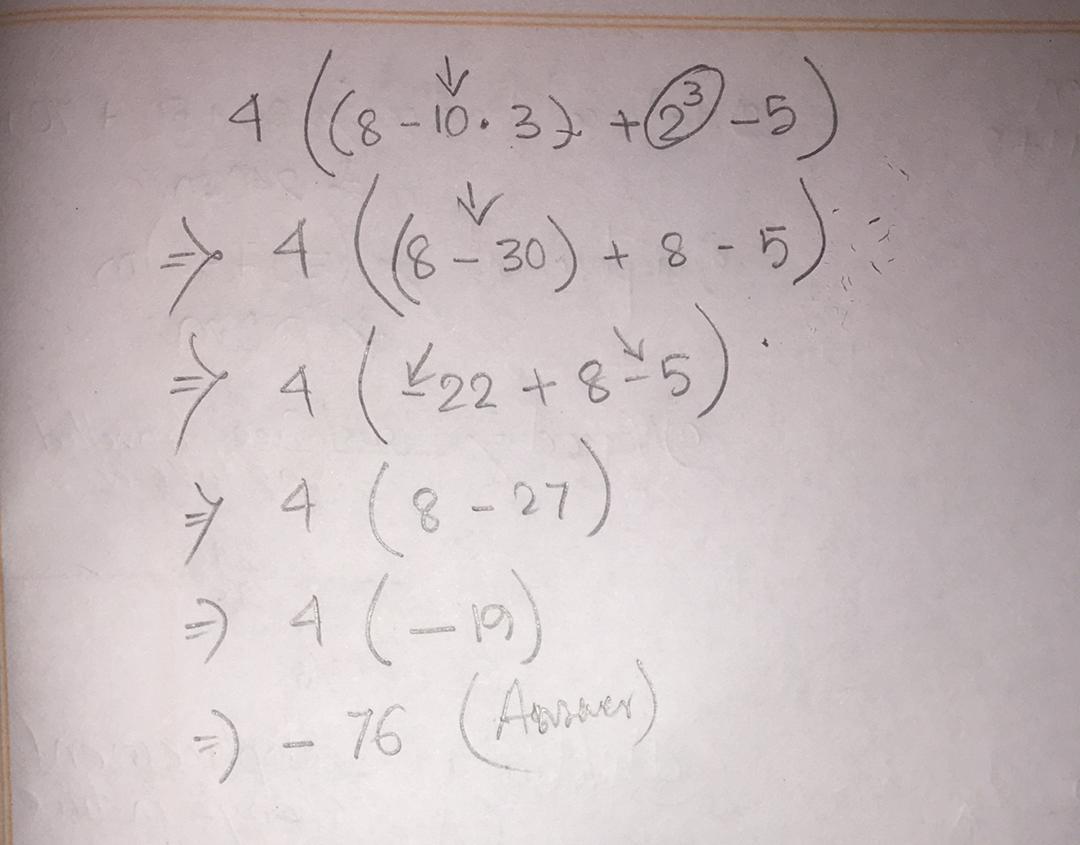 4 ((8 - 10 · 3) + 2³ - 5)
⇒ 4 ((8 - 30) + 8 - 5)
⇒ 4 (-22 + 8 - 5)
⇒ 4 (8 - 27)
⇒ 4 (-19)
⇒ - 76 (Answer)